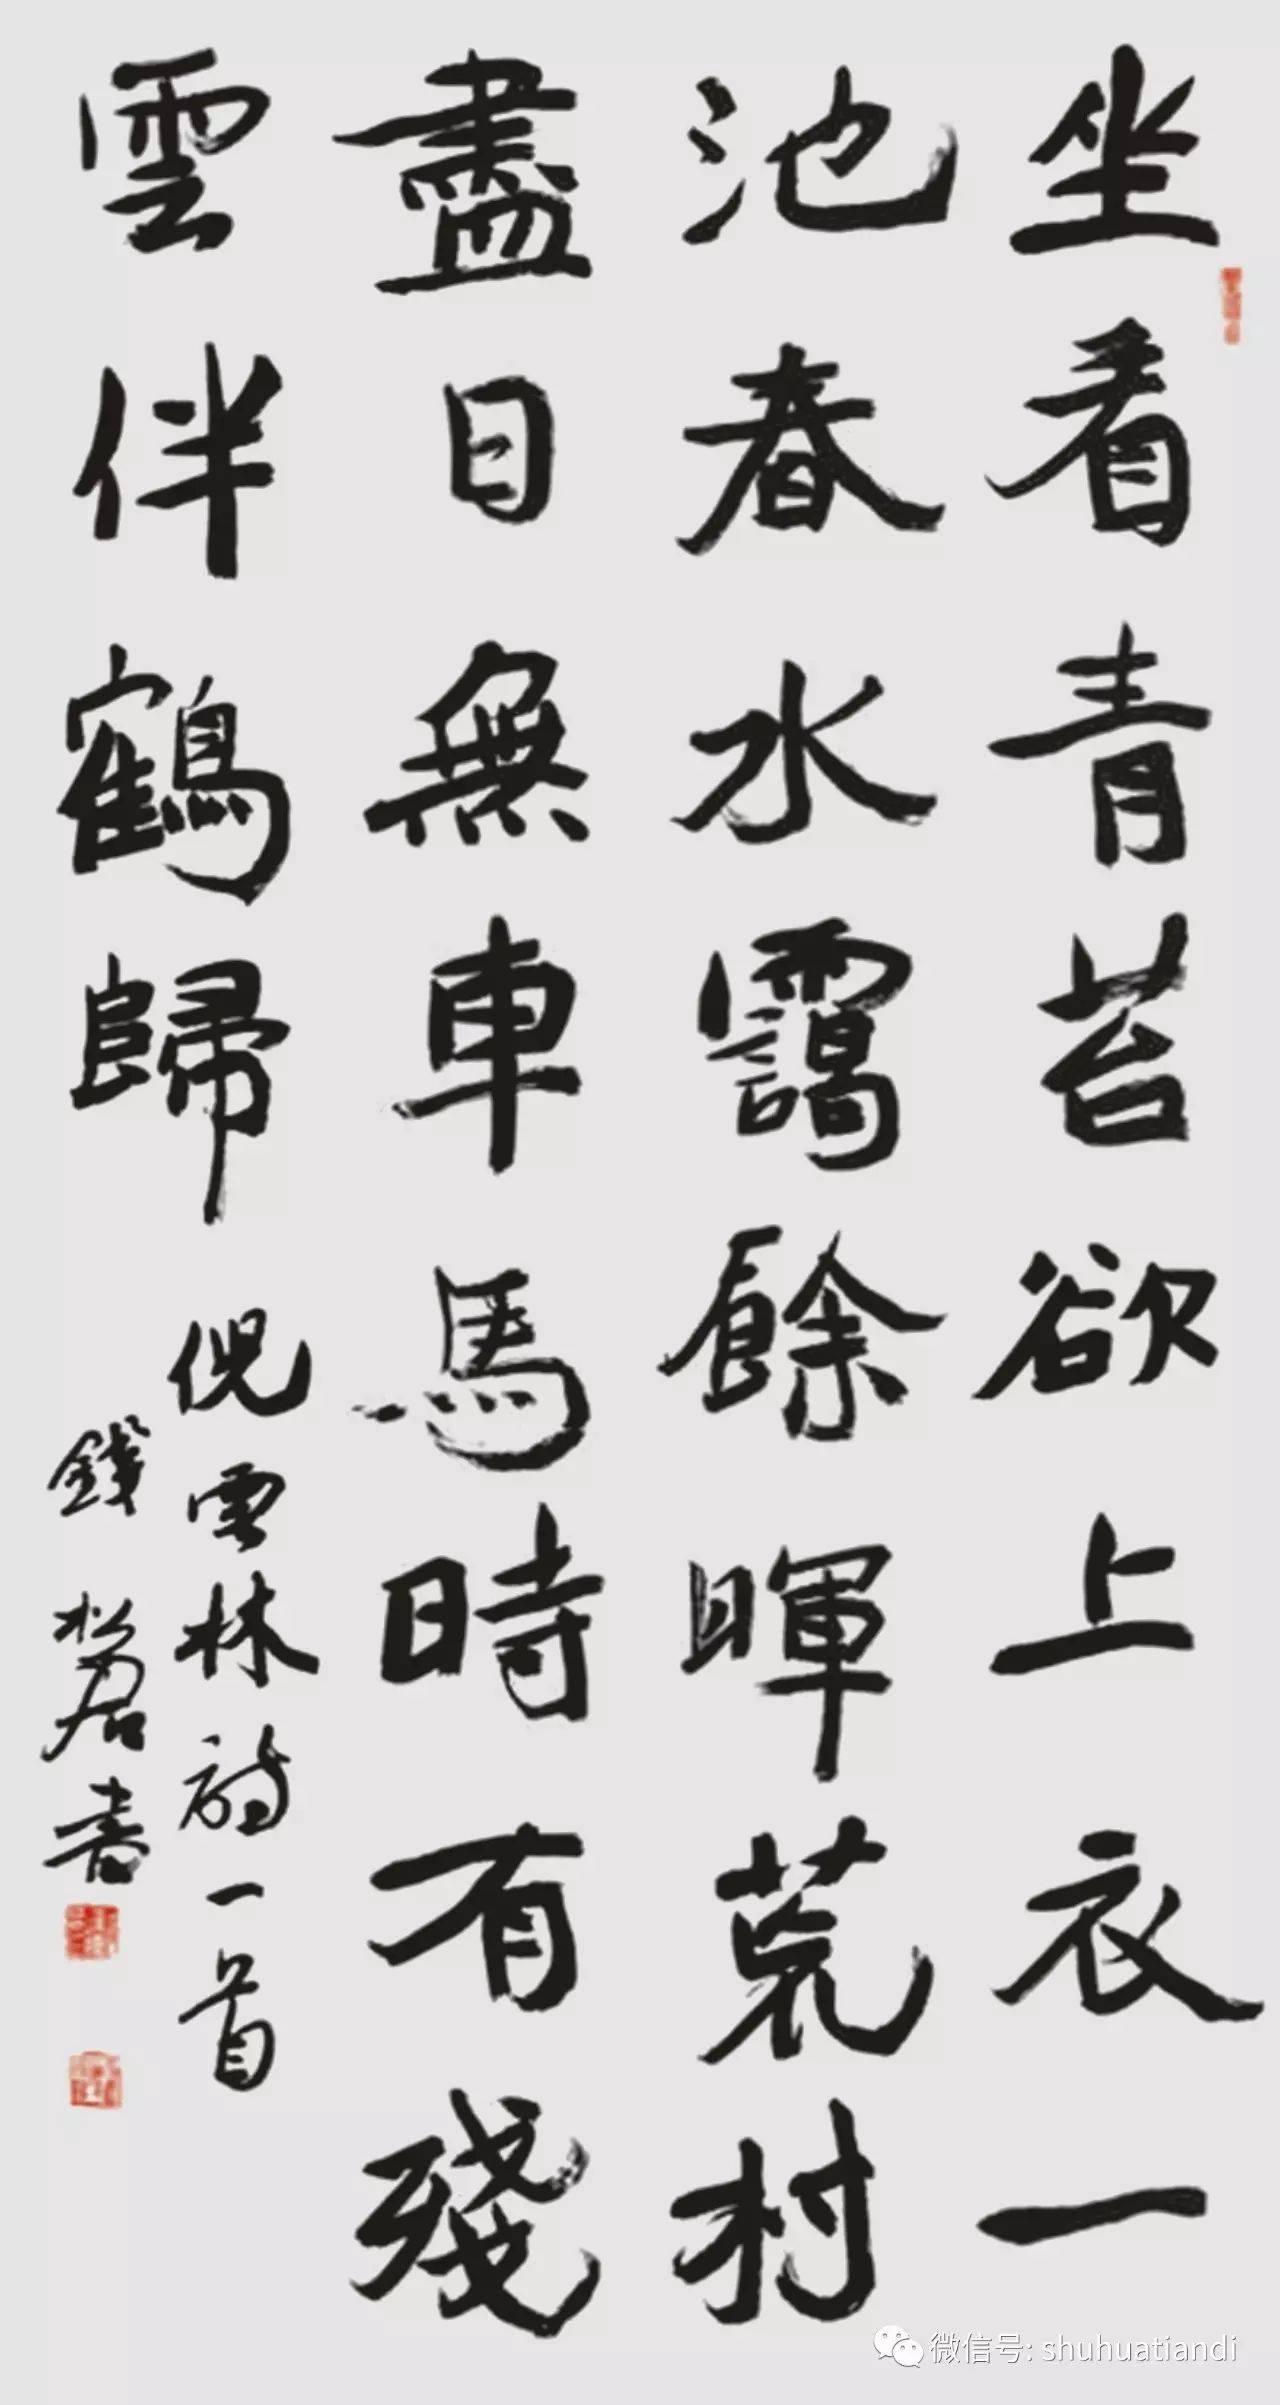 坐看青苔欲上衣一
池春水靄餘暉荒村
盡日無車馬時有殘
雲伴鶴歸
倪雲林詩一首
錢松嵒書
微信号: shuhuatiandi